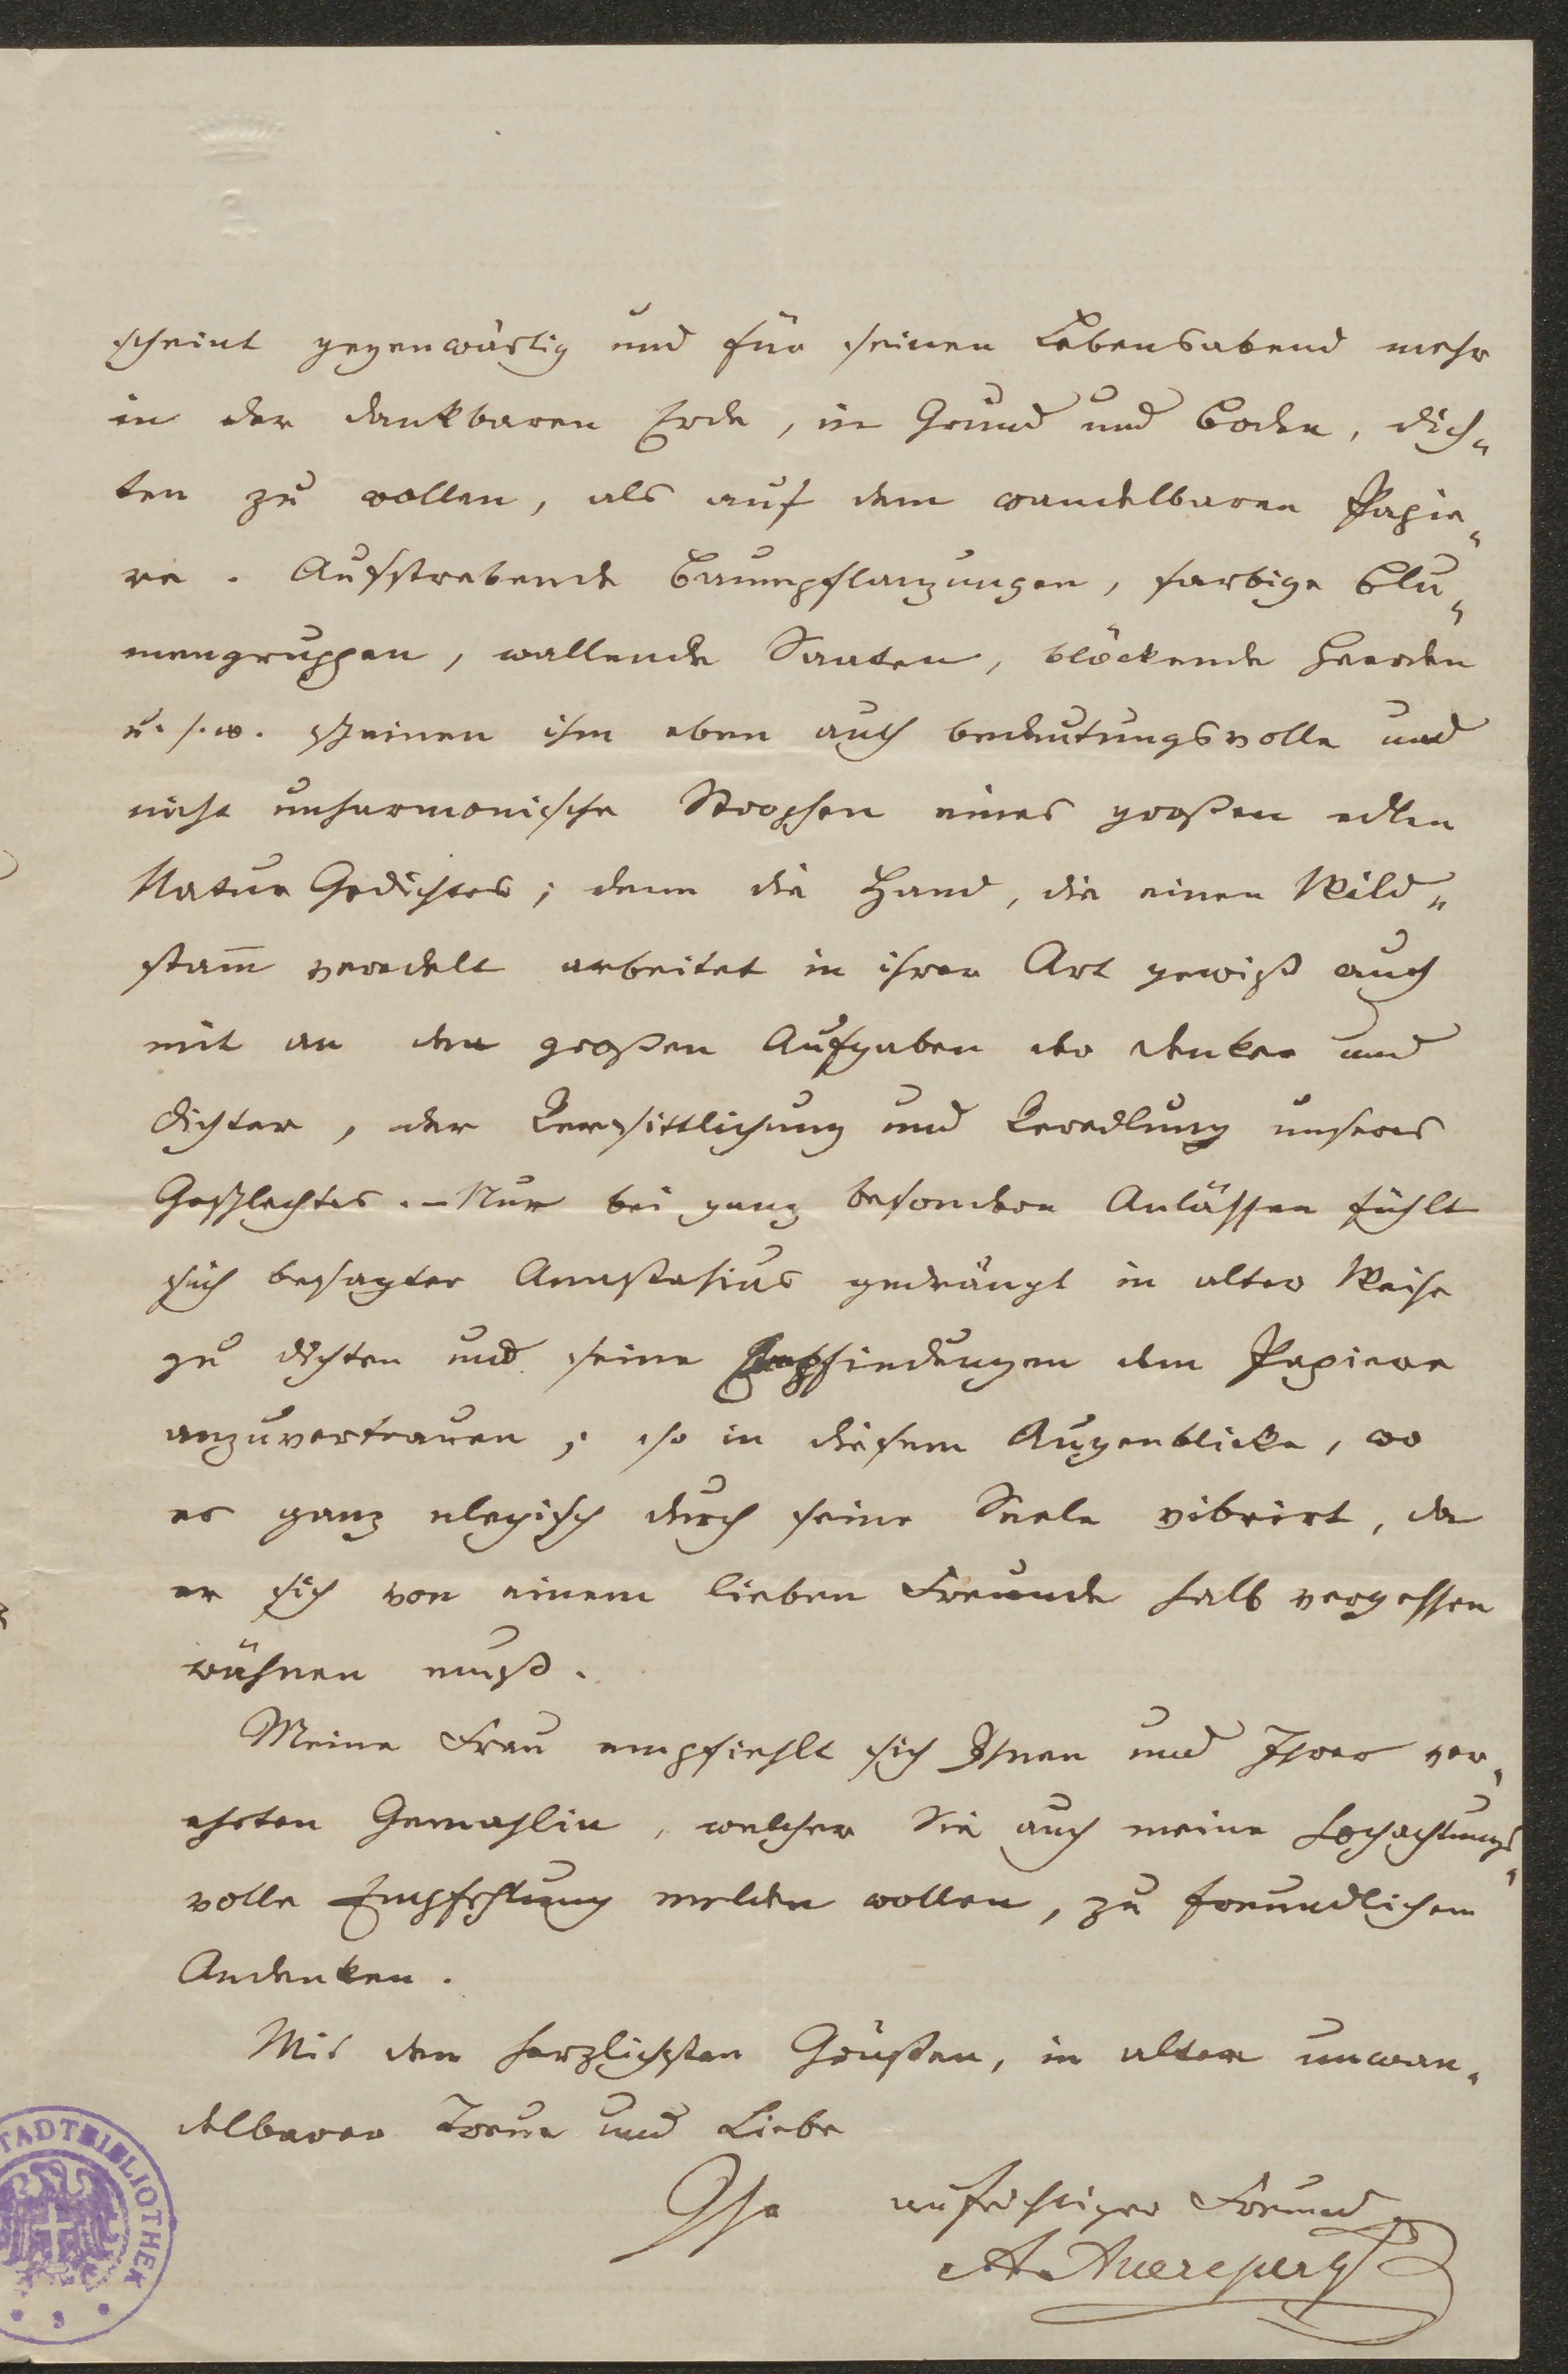 scheint gegenwärtig und für seinen Lebensabend mehr
in der dankbaren Erde, in Grund und Boden, dich„
ten zu wollen, als auf dem wandelbaren Papie„
re. Aufstrebende Baumpflanzungen, farbige Blu„
mengruppen, wallende Saaten, blöckende Heerden
u. s. w. scheinen ihm eben auch bedeutungsvolle und
nicht unharmonische Strophen eines großen edlen
Natur Gedichtes; denn die Hand, die einen Wild„
stam̅ veredelt arbeitet in ihrer Art gewiß auch
mit an den großen Aufgaben der Denker und
Dichter, der Versittlichung und Veredlung unseres
Geschlechtes. – Nur bei ganz besonderen Anlässen fühlt
sich besagter Anastasius gedrängt in alter Weise
zu dichten und seine Empfindungen dem Papiere
anzuvertrauen; so in diesem Augenblicke, wo
es ganz elegisch durch seine Seele vibrirt, da
er sich von einem lieben Freunde halb vergessen
wähnen muß.
Meine Frau empfiehlt sich Ihnen und Ihrer ver„
ehrten Gemahlin, welcher Sie auch meine hochachtungs„
volle Empfehlung melden wollen, zu freundlichem
Andenken.
Mit den herzlichsten Grüßen, in alter unwan„
delbarer Treue und Liebe
Ihr aufrichtiger Freund
A. Auersperg
STADTBIBLIOTHEK